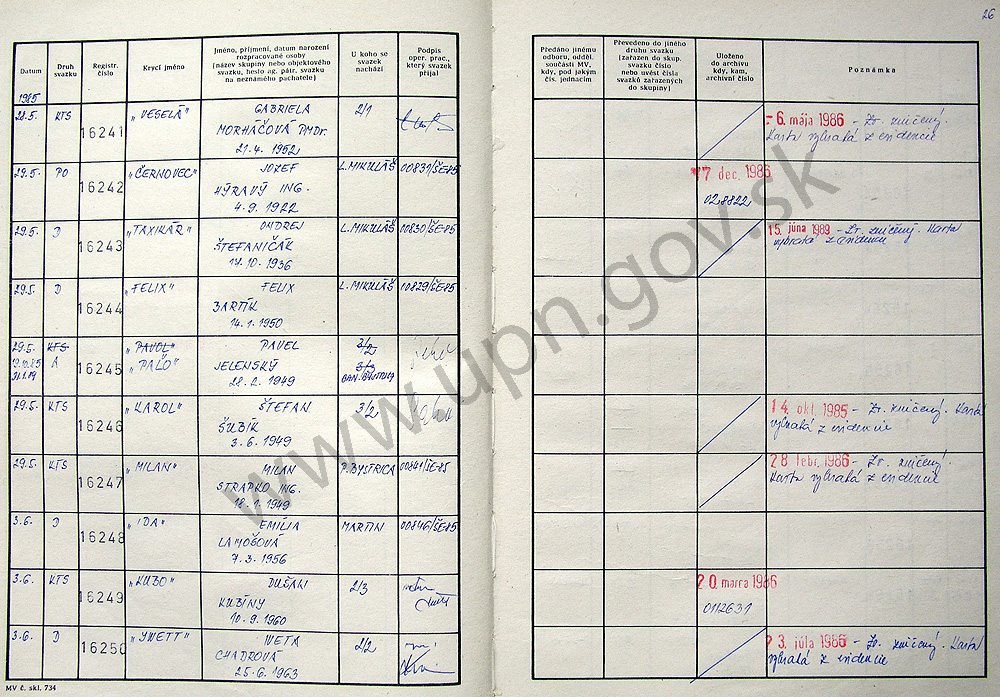 26
Datum
Druh svazku
Registr. číslo
Krycí jméno
Jméno, příjmení, datum narození
rozpracované osoby
(název skupiny nebo objektového
svazku, heslo ag. pátr. svazku
na neznámého pachatele)
U koho se
svazek
nachází
Podpis
oper. prac.,
který svazek
přijal
Předáno jinému
odboru, odděl.
součásti MV,
kdy, pod jakým
čís. jednacím
Převedeno do jiného
druhu svazku
(zařazen do skup.
svazku číslo
nebo uvést čísla
svazků zařazených
do skupiny)
Uloženo
do archivu
kdy, kam,
archivní číslo
Poznámka
1985
28.5. KTS 16241 „VESELÁ" GABRIELA 2/1
MORHÁČOVÁ PMDr.
21.4. 1952
- 6. mája 1986 - Zv. zničený.
Karta vybratá z evidencie
29.5. PO 16242 „ČERNOVEC" JOZEF L.MIKULÁŠ 00831/ŠE-85
HÝRAVÝ ING.
4.9. 1922
17 dec. 1986
028822
29.5. D 16243 „TAXIKÁR" ONDREJ L.MIKULÁŠ 00830/ŠE-85
ŠTEFANIČÁK
17.10. 1936
15. júna 1989 - Zv. zničený. Karta
vybratá z evidencie
29.5. D 16244 „FELIX" FELIX L.MIKULÁŠ 00829/ŠE-85
BARTÍK
14.1. 1950
29.5. KTS 16245 „PAVOL" PAVEL 3/2
A „PAĽO" JELENSKÝ 3/3
28.2. 1949 BAN. BYSTRICA
29.5. KTS 16246 „KAROL" ŠTEFAN 3/2
ŠUBÍK
3.6. 1949
14. okt. 1985 - Zv. zničený. Karta
vybratá z evidencie
29.5. KTS 16247 „MILAN" MILAN P.BYSTRICA 00841/ŠE-85
STRAPKO ING.
18.1. 1949
28 febr. 1986 - Zv. zničený
Karta vybratá z evidencie
3.6. D 16248 „IDA" EMÍLIA MARTIN 00846/ŠE-85
LAMOŠOVÁ
7.3. 1956
3.6. KTS 16249 „KUBO" DUŠAN 2/3
KUBÍNY
10.9. 1960
20 marca 1986
3.6. D 16250 „YWETT" IVETA 2/2
CHADROVÁ
25.6. 1963
23. júla 1986 - Zv. zničený. Karta
vybratá z evidencie
MV č. skl. 734
www.upn.gov.sk